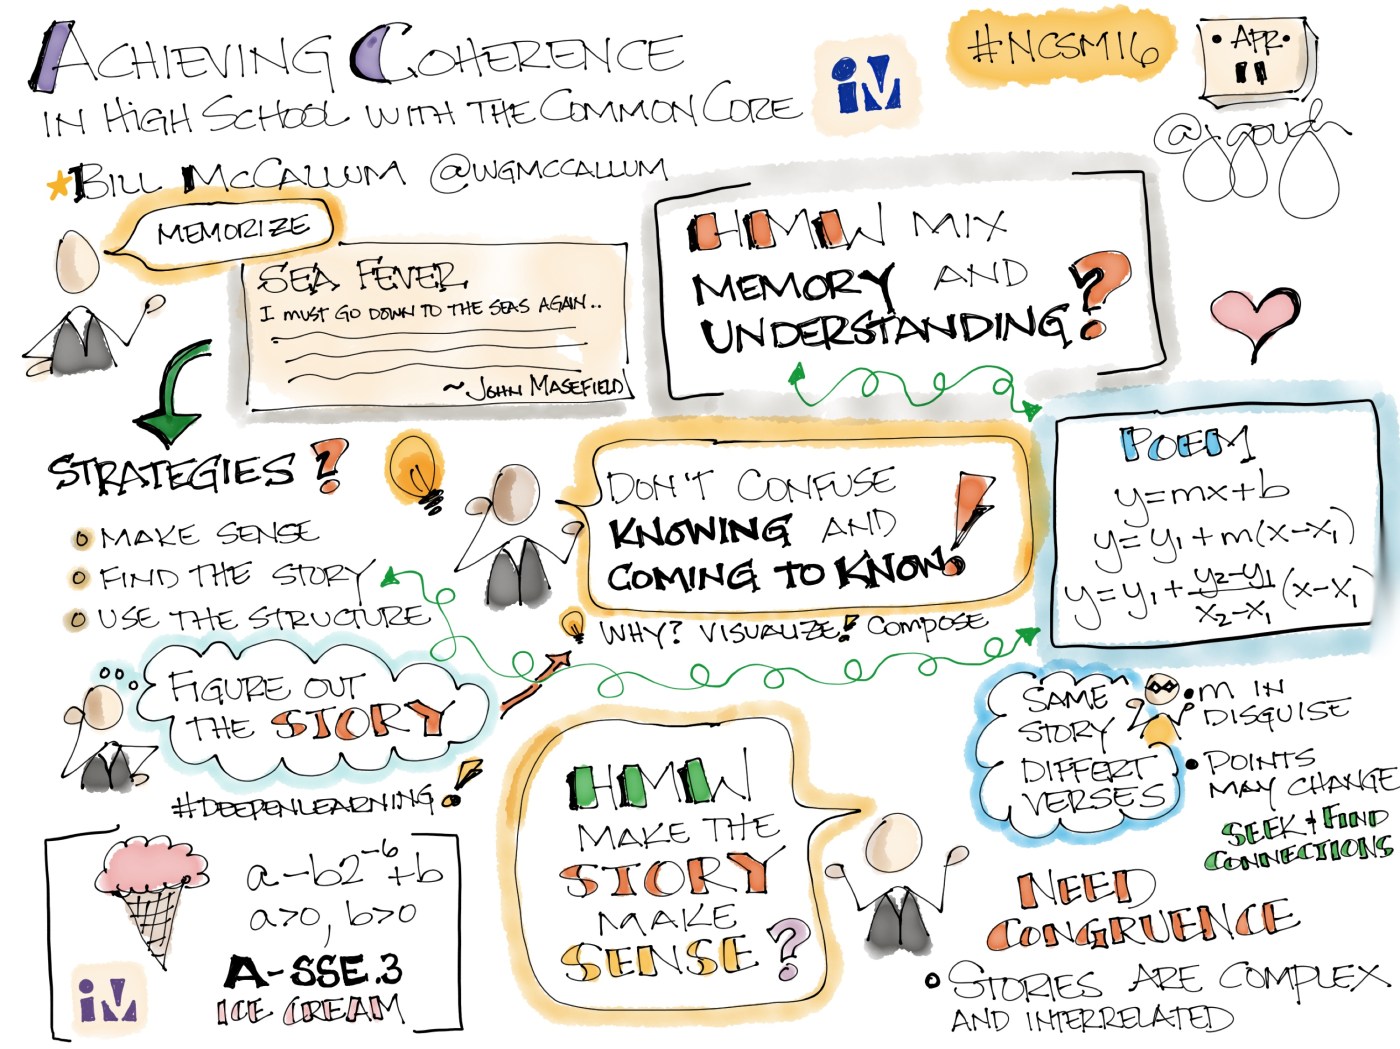 ACHIEVING COHERENCE
IN HIGH SCHOOL WITH THE COMMON CORE
BILL MCCALLUM @WGMCCALLUM
IM
#NCSM16
APR
11
@jgough
MEMORIZE
SEA FEVER
I MUST GO DOWN TO THE SEAS AGAIN..
~JOHN MASEFIELD
HMW MIX
MEMORY AND
UNDERSTANDING?
STRATEGIES?
MAKE SENSE
FIND THE STORY
USE THE STRUCTURE
DON'T CONFUSE
KNOWING AND
COMING TO KNOW!
WHY? VISUALIZE! COMPOSE
POEM
y=mx+b
y=y₁+m(x-x₁)
y=y₁+(y₂-y₁)/(x₂-x₁)(x-x₁)
FIGURE OUT
THE STORY
#DEEPENLEARNING!
a-b2⁻⁶+b
a>0, b>0
A-SSE.3
ICE CREAM
IM
HMW
MAKE THE
STORY
MAKE
SENSE?
SAME
STORY
DIFFERT
VERSES
• M IN
DISGUISE
• POINTS
MAY CHANGE
SEEK + FIND
CONNECTIONS
NEED
CONGRUENCE
STORIES ARE COMPLEX
AND INTERRELATED